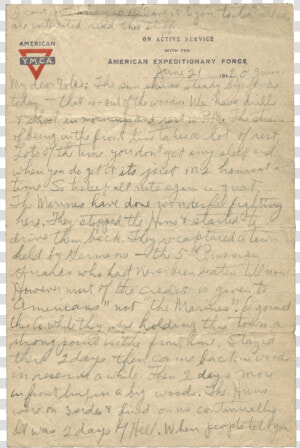 AMERICAN
YMCA
ON ACTIVE SERVICE
WITH THE
AMERICAN EXPEDITIONARY FORCE
June 21 191
My dear Folks: The sun shines steady
today — that is out of the woods. We have drills
& school in mornings and rest in P.M. The strain
of being in the front line takes a lot of rest.
Lots of the time you don't get any sleep and
when you do get it its just in 2 hours at a
time. So to sleep all nite again is great.
The Marines have done wonderful fighting
here. They stopped the Huns & started to
drive them back. They recaptured a town
held by Germans — the 5th Prussian
who had never been beaten till now
However most of the credit is given to
"Americans" not "The Marines".
this to while they were holding this town a
strong point in the front line. Stayed
there 2 days. then came back in wood
in reserve a while. Then 2 days more
in front line in a big woods. The Huns
were on 3 sides & fired on us continually.
It was 2 days of Hell. When people tell you